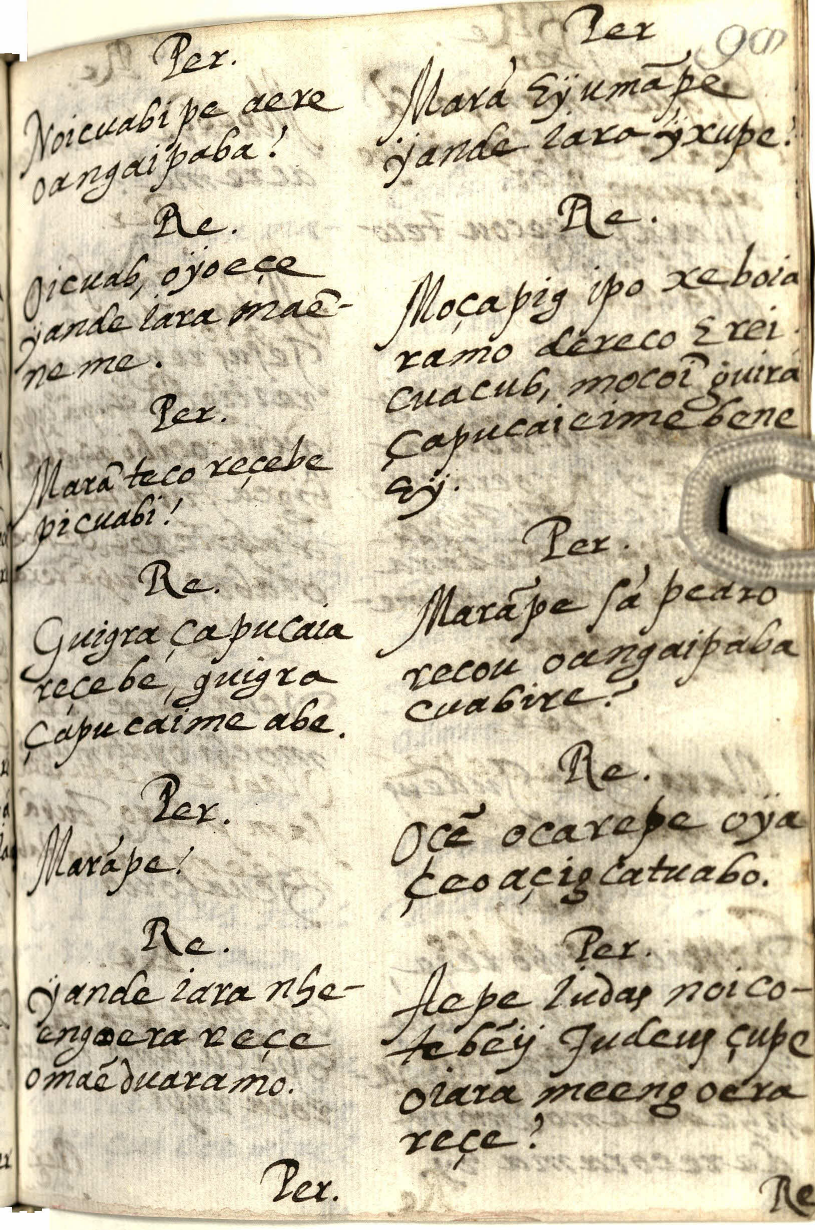 Per.
Noicuabi pe aere
oangaipaba?
Re.
Oicuab, oÿoeçe
yande iara maẽ-
neme.
Per.
Marã teco reçebe
picuabi?
Re.
Guigra çapucaia
reçebe, guigra
çapucaime abe.
Per.
Marãpe?
Re.
yande iara nhe-
engoera reçe
omaẽduaramo.
Per.
Per
Marã Eÿ umãpe
ÿande iara ÿxupe?
Re.
Moçapig ipo xeboia
ramo dereco Erei
cuacub, mocoĩ guira
çapucaieimebene
Eÿ.
Per.
Marãpe Sã pedro
recou oangaipaba
cuabire?
Re.
Ocẽ ocarepe oÿa
çeoaçig catuabo.
Per.
Aepe Iudas noico-
tebẽÿ Judeus çupe
oiara meengoera
reçe?
Re